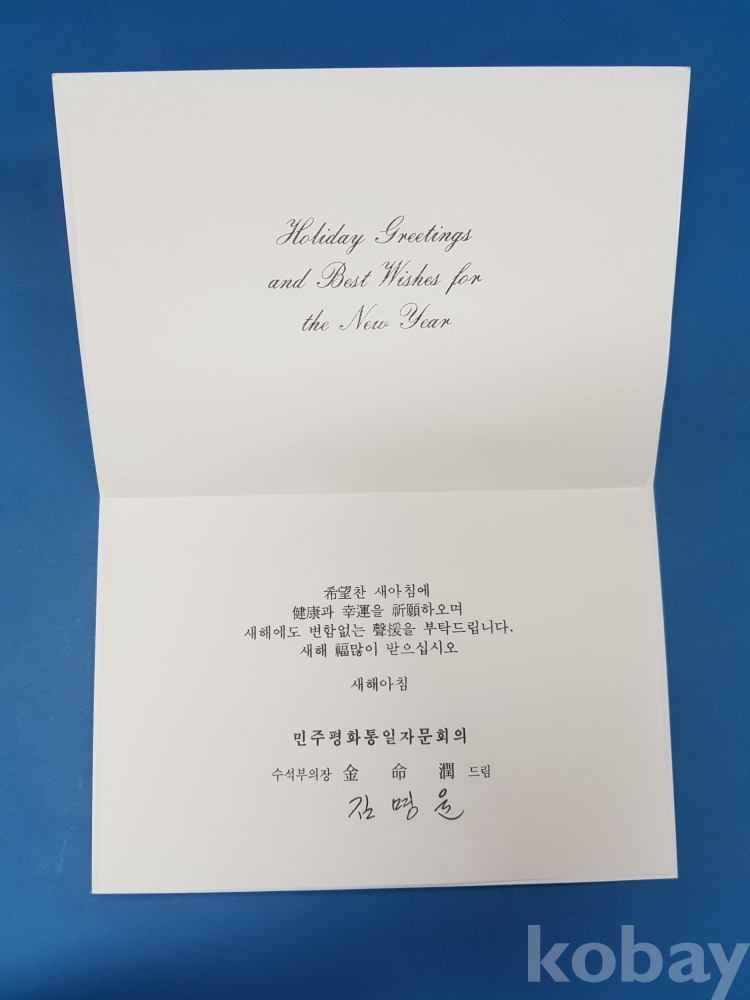 Holiday Greetings
and Best Wishes for
the New Year
希望찬 새아침에
健康과 幸運을 祈願하오며
새해에도 변함없는 聲援을 부탁드립니다.
새해 福많이 받으십시오
새해아침
민주평화통일자문회의
수석부의장 金 命 潤 드림
김 명 윤
kobay